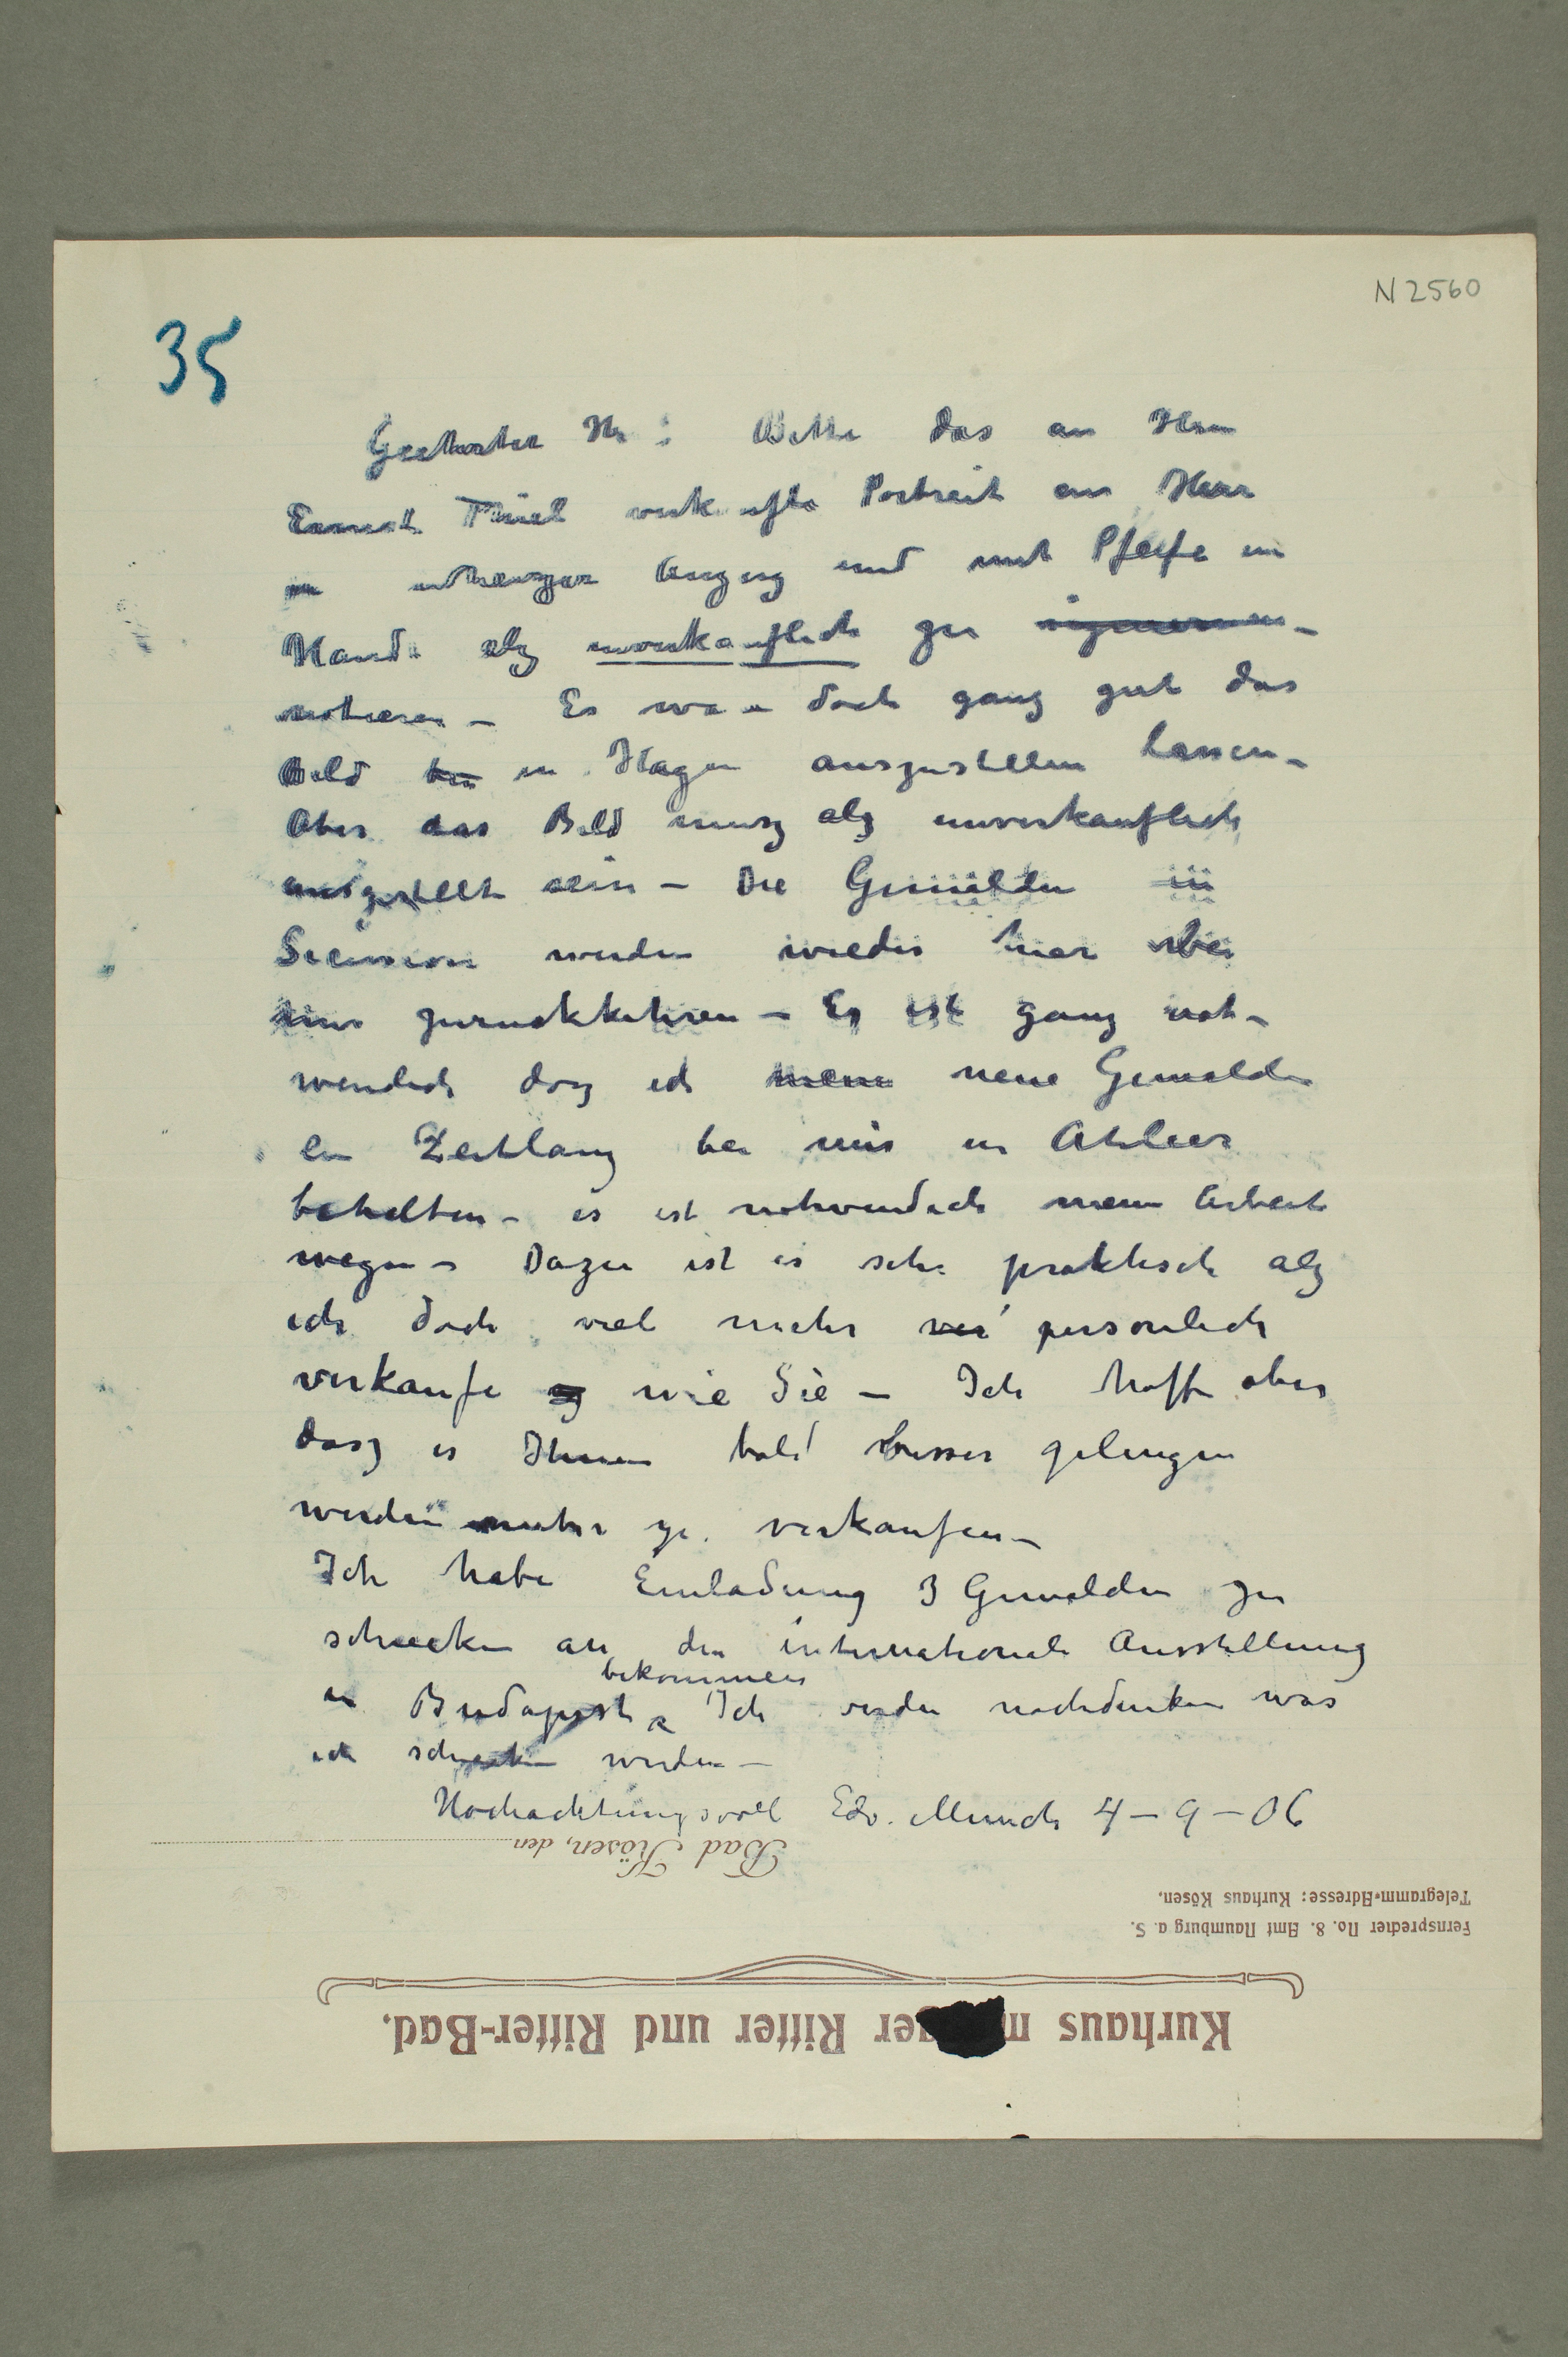 N 2560
35
Geehrter Hr: Bitte das an Herrn
Ernest Thiel verkaufte Portrait ein Herr
in schwarzer Anzug und mit Pfeife in
Hand als unverkauflich zu
notieren – Es war doch ganz gut das
Bild in Hagen auszustellen lassen –
Aber das Bild musz alz unverkauflich
ausgestellt sein – Die Gemälden in
Secession werden wieder hier bei
mir zuruckkehren – Es ist ganz not-
wendich dasz ich meine neue Gemalden
ein Zeitlang bei mir in Atelier
behalten – es ist notwendich mein Arbeit
wegen – Dazu ist es sehr praktisch alz
ich doch viel mehr ver personlich
verkaufe wie Sie – Ich hoffe aber
dasz es Ihnen bald besser gelingen
werden mehr zu verkaufen –
Ich habe Einladung 3 Gemalden zu
schicken an den internationale Ausstellung
in Budapest bekommen Ich werde nachdenken was
ich schicken werden –
Hochachtungsvoll Edv. Munch 4–9–06
Bad Kösen, den
Telegramm-Adresse: Kurhaus Kösen.
Fernsprecher No. 8. Amt Naumburg a. S.
Kurhaus m ger Ritter und Ritter-Bad.